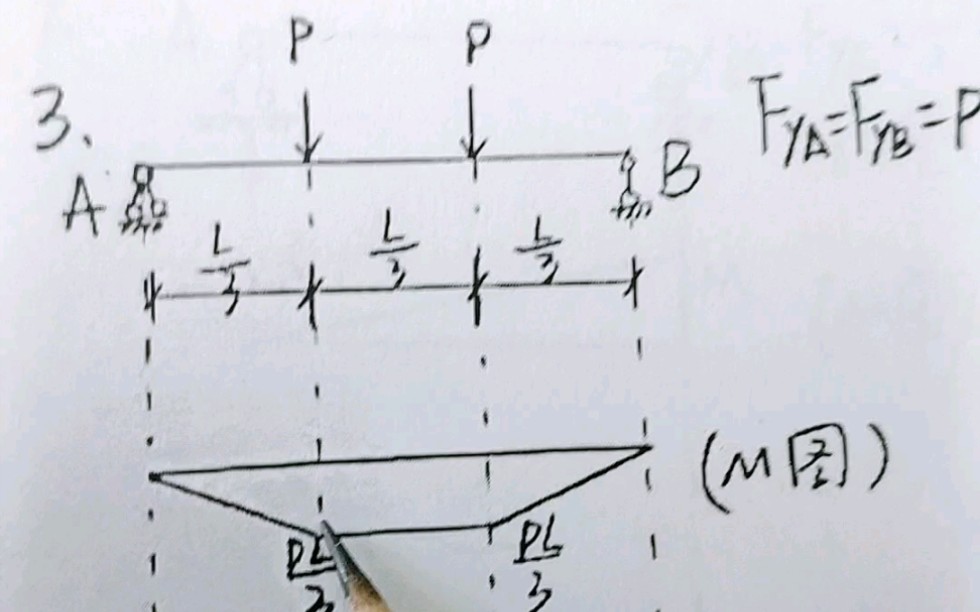 P P
3.
F_yA=F_yB=P
A B
L/3 L/3 L/3
(M图)
PL/3 PL/3